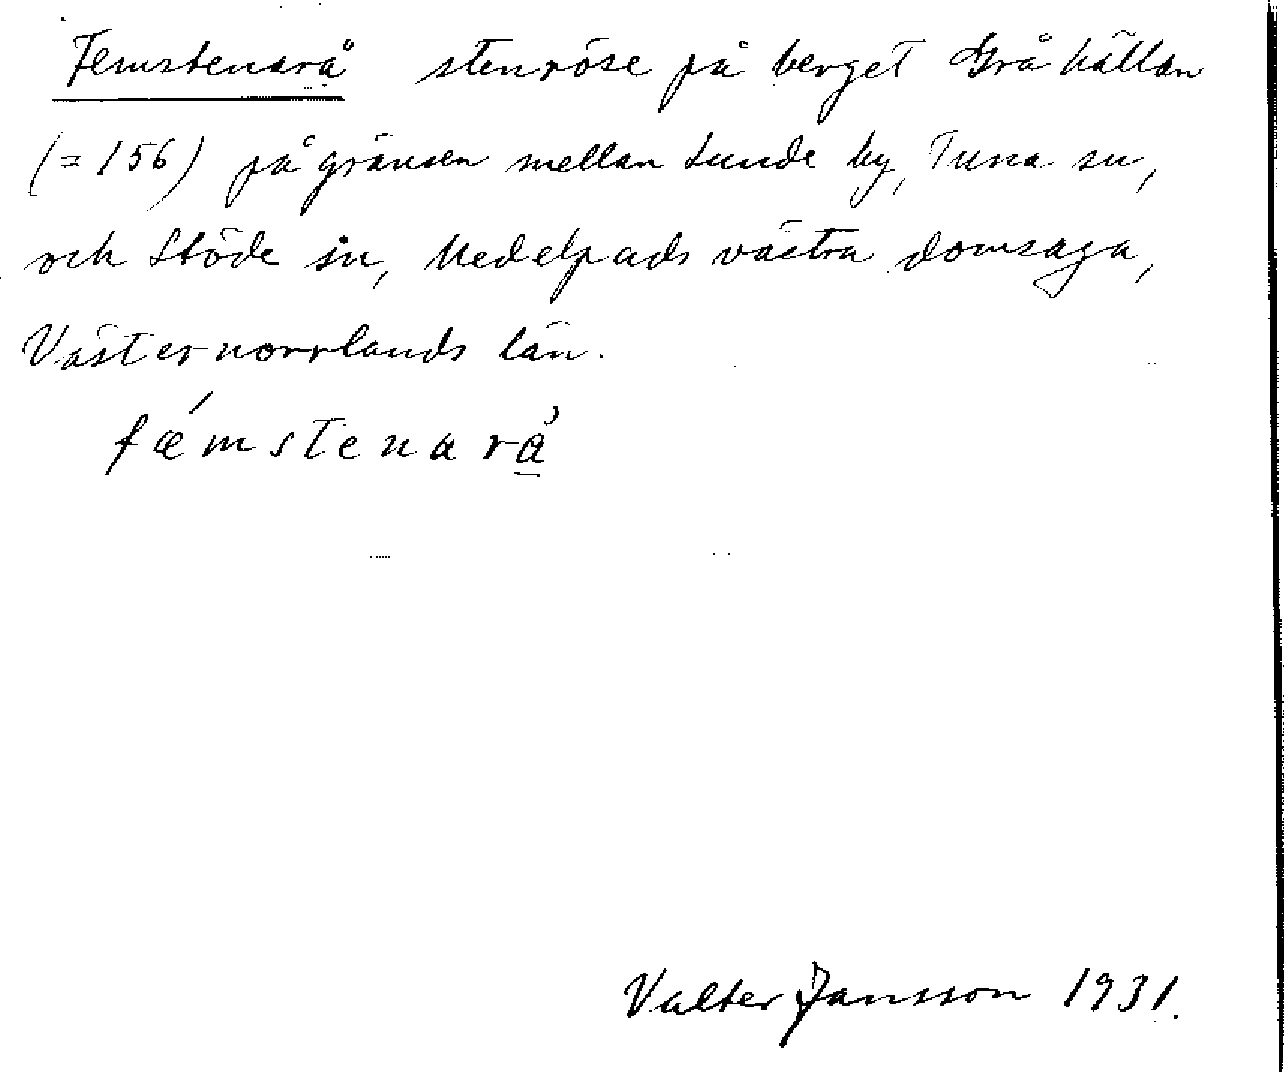 Femstenarå stenröse på berget Gråhällan
(= 156) på gränsen mellan Lunde by, Tuna sn,
och Stöde sn, Medelpads västra domsaga,
Västernorrlands län.
fǽmstenarå̲
Valter Jansson 1931.